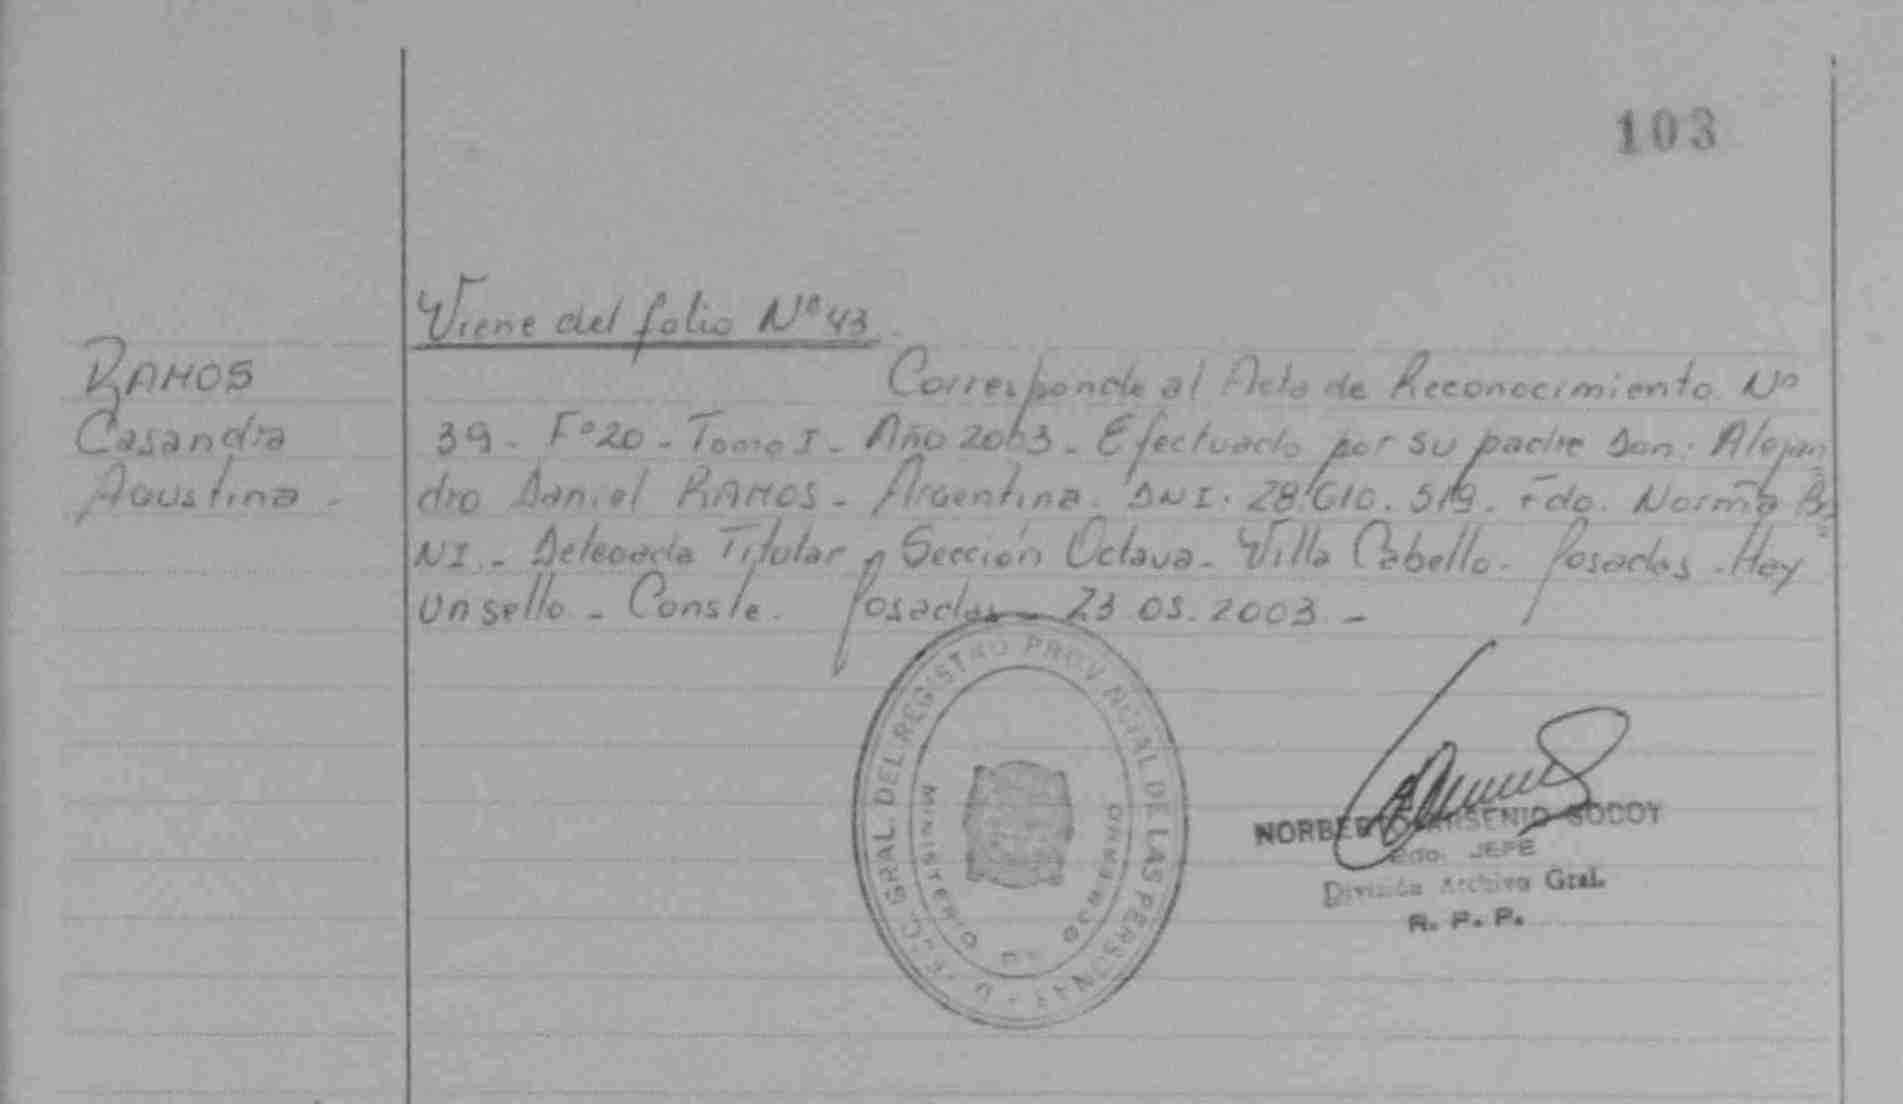 103
Viene del folio Nº 43
RAMOS
Casandra
Agustina -
Corresponde al Acta de Reconocimiento Nº
39 - Fº 20 - Tomo I - Año 2003 - Efectuado por su padre Don: Alejan
dro Daniel RAMOS - Argentina. DNI. 28.610.519. Fdo. Norma
NI - Delegada Titular Sección Octava - Villa Cabello - Posadas - Hay
un sello - Conste. Posadas - 23.05.2003 -
GRAL. DEL REGISTRO PROVINCIAL DE LAS PERSONAS
MINISTERIO DE GOBIERNO
NORBERTO ARSENIO GODOY
JEFE
División Archivo Gral.
R. P. P.